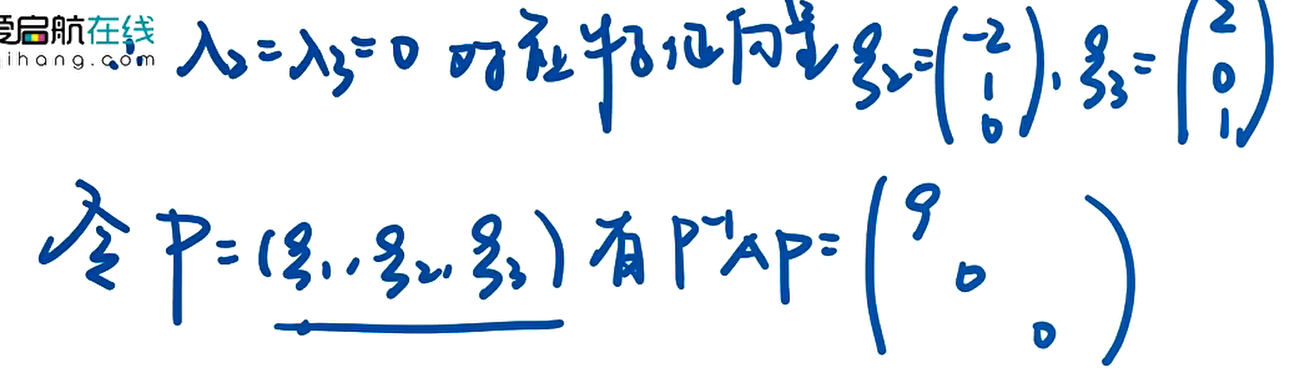 爱启航在线
ihang.com
∴ λ₂=λ₃=0 对应特征向量 ξ₂=(-2 1 0), ξ₃=(2 0 1)
令 P=(ξ₁, ξ₂, ξ₃) 有 P⁻¹AP=(9 0 0)